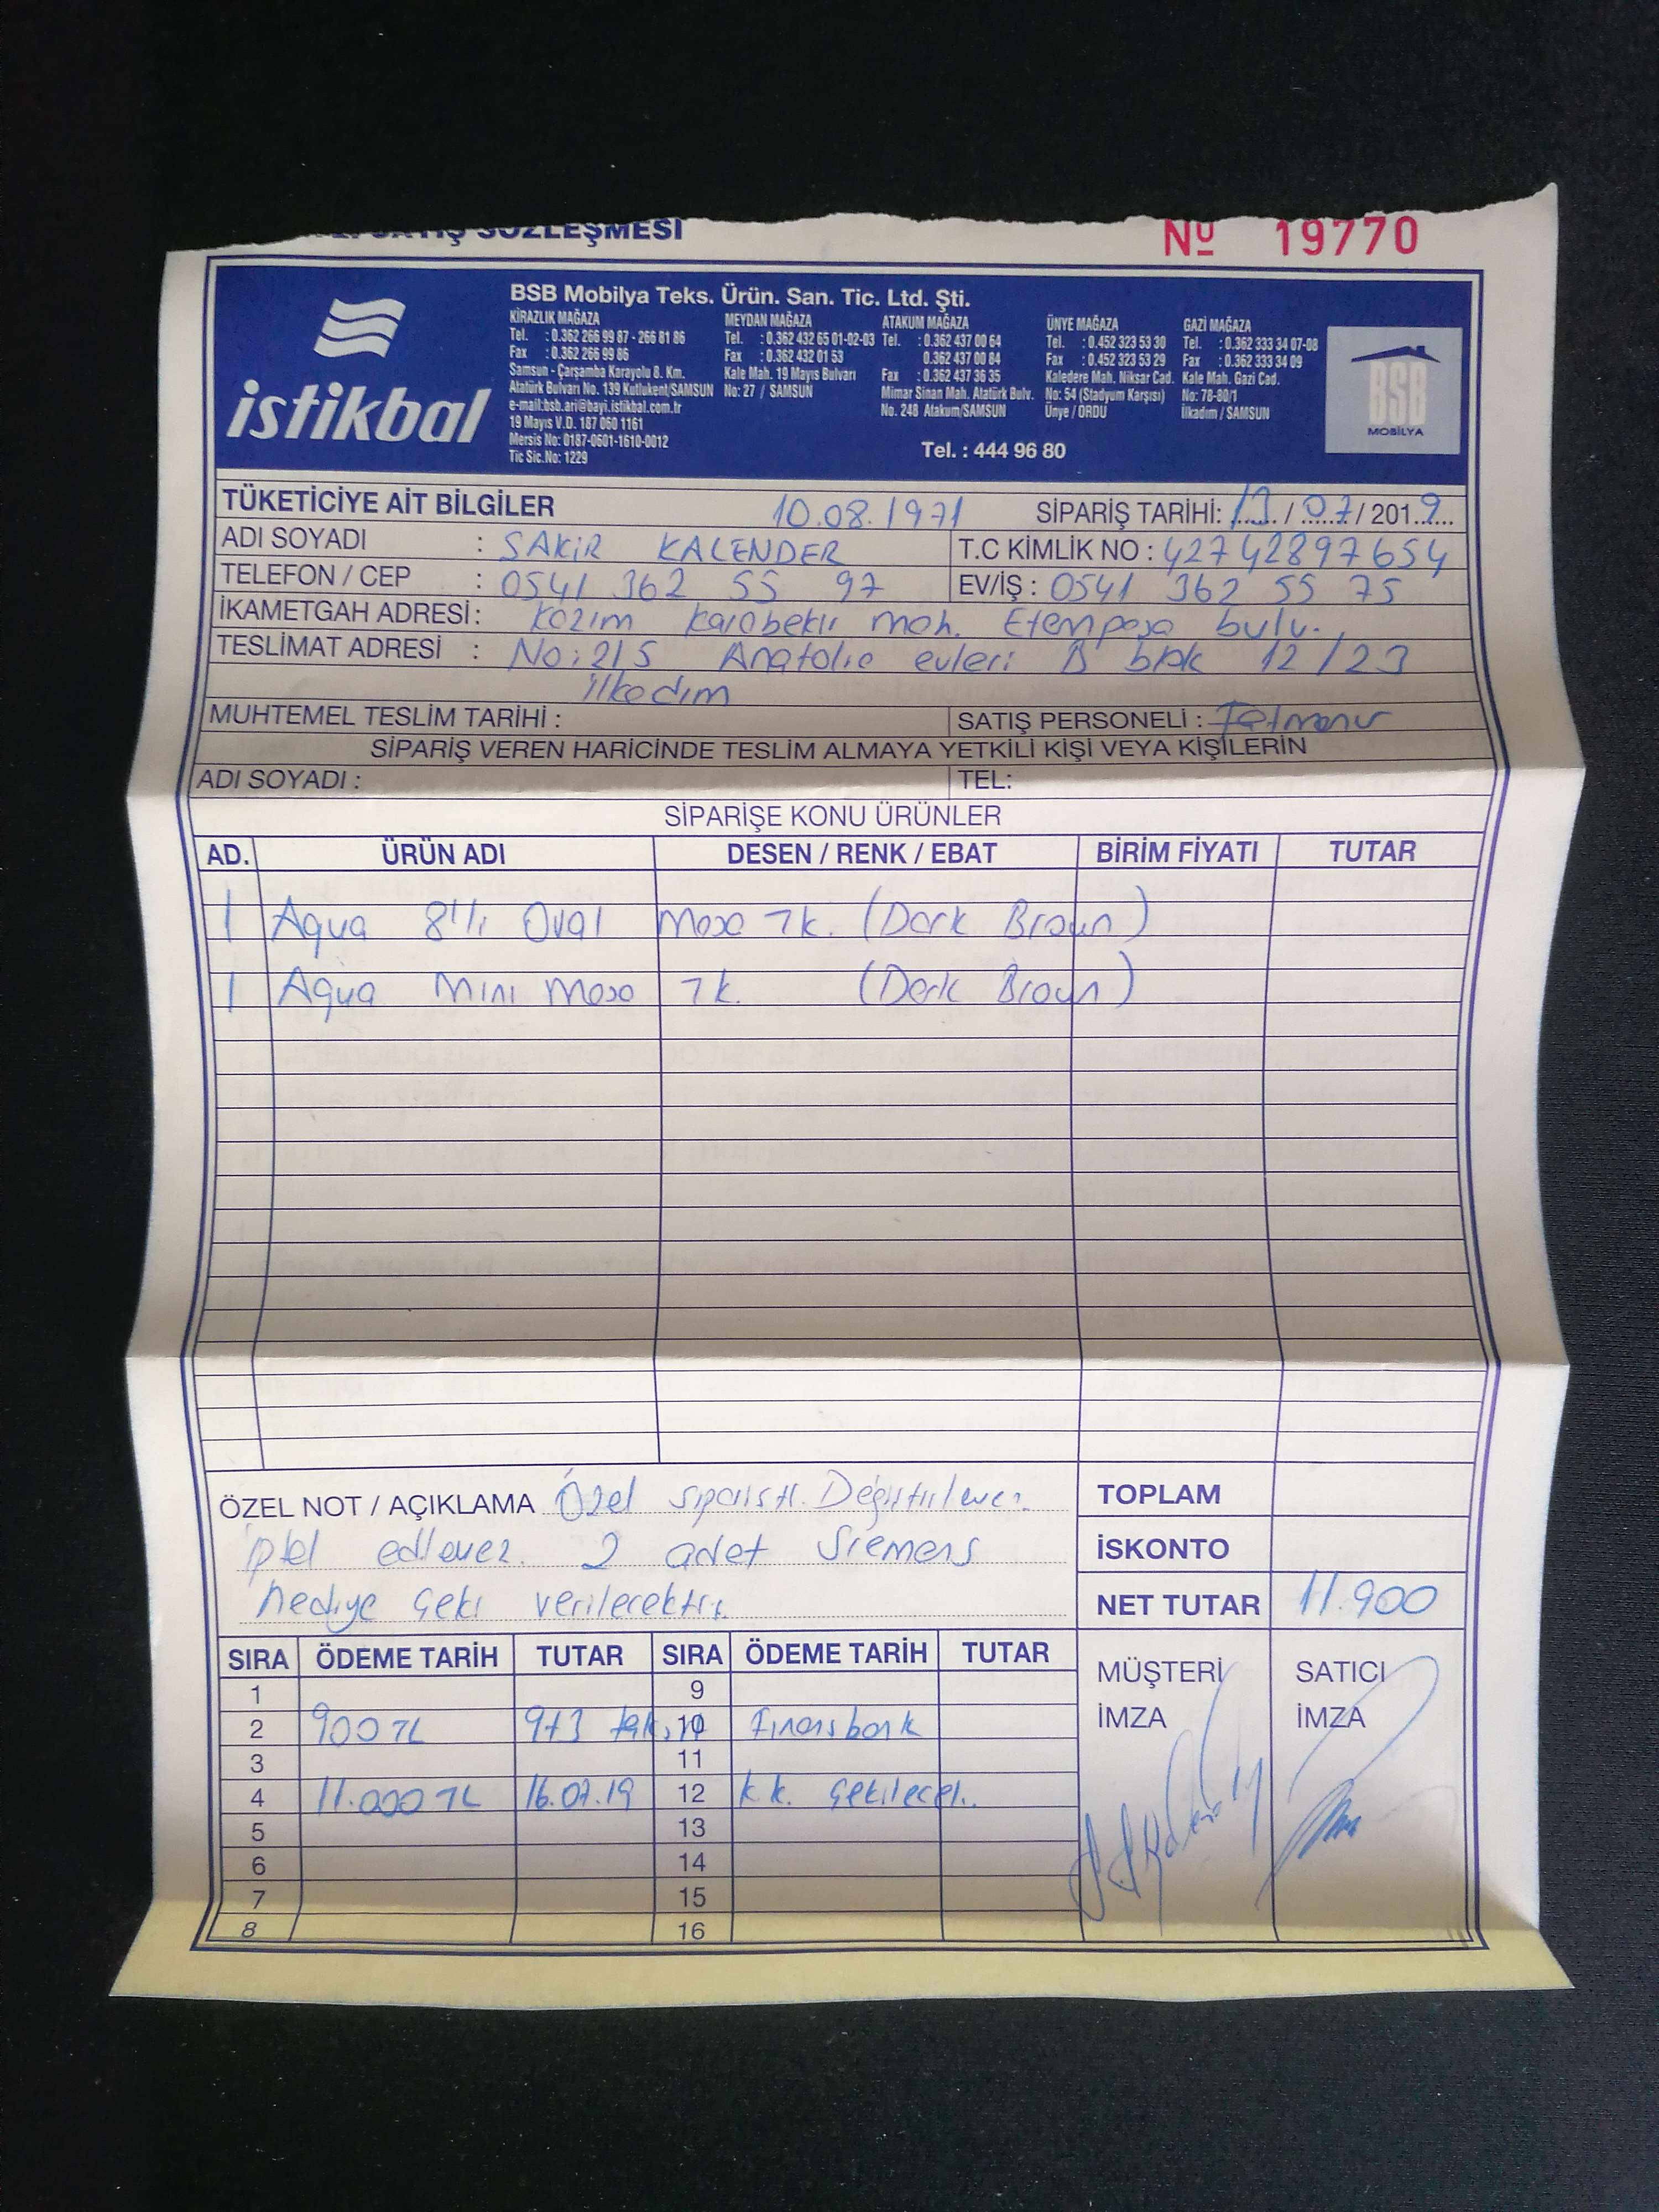 SATIŞ SÖZLEŞMESİ
Nº 19770
istikbal
BSB Mobilya Teks. Ürün. San. Tic. Ltd. Şti.
KİRAZLIK MAĞAZA
Tel. : 0.362 266 99 87 - 266 81 86
Fax : 0.362 266 99 86
Samsun - Çarşamba Karayolu 8. Km.
Atatürk Bulvarı No. 139 Kutlukent/SAMSUN
e-mail:bsb.ari@bayi.istikbal.com.tr
19 Mayıs V.D. 187 060 1161
Mersis No: 0187-0601-1610-0012
Tic Sic.No: 1229
MEYDAN MAĞAZA
Tel. : 0.362 432 65 01-02-03
Fax : 0.362 432 01 53
Kale Mah. 19 Mayıs Bulvarı
No: 27 / SAMSUN
ATAKUM MAĞAZA
Tel. : 0.362 437 00 64
0.362 437 00 84
Fax : 0.362 437 36 35
Mimar Sinan Mah. Atatürk Bulv.
No. 248 Atakum/SAMSUN
ÜNYE MAĞAZA
Tel. : 0.452 323 53 30
Fax : 0.452 323 53 29
Kaledere Mah. Niksar Cad.
No: 54 (Stadyum Karşısı)
Ünye / ORDU
GAZİ MAĞAZA
Tel. : 0.362 333 34 07-08
Fax : 0.362 333 34 09
Kale Mah. Gazi Cad.
No: 78-80/1
İlkadım / SAMSUN
Tel. : 444 96 80
BSB
MOBİLYA
TÜKETİCİYE AİT BİLGİLER 10.08.1971 SİPARİŞ TARİHİ: 13 / 07 / 2019
ADI SOYADI : SAKİR KALENDER T.C KİMLİK NO : 42742897654
TELEFON / CEP : 0541 362 55 97 EV/İŞ : 0541 362 55 75
İKAMETGAH ADRESİ : Kazım Karabekir mah. Etempaşa bulv.
TESLİMAT ADRESİ : No: 215 Anatolia evleri B blok 12/23
ilkadım
MUHTEMEL TESLİM TARİHİ : SATIŞ PERSONELİ : Fatmanur
SİPARİŞ VEREN HARİCİNDE TESLİM ALMAYA YETKİLİ KİŞİ VEYA KİŞİLERİN
ADI SOYADI : TEL:
SİPARİŞE KONU ÜRÜNLER
AD. ÜRÜN ADI DESEN / RENK / EBAT BİRİM FİYATI TUTAR
1 Aqua 8'li Oval Masa Tk. (Dark Brown)
1 Aqua Mini Masa Tk. (Dark Brown)
ÖZEL NOT / AÇIKLAMA Özel sipariştir. Değiştirilemez.
iptal edilemez. 2 adet Siemens
hediye çeki verilecektir.
TOPLAM
İSKONTO
NET TUTAR 11.900
SIRA ÖDEME TARİH TUTAR SIRA ÖDEME TARİH TUTAR
1 9
2 900 TL 9+3 10 Finansbank
3 11
4 11.000 TL 16.07.19 12 k.k. çekilecek.
5 13
6 14
7 15
8 16
MÜŞTERİ
İMZA
SATICI
İMZA